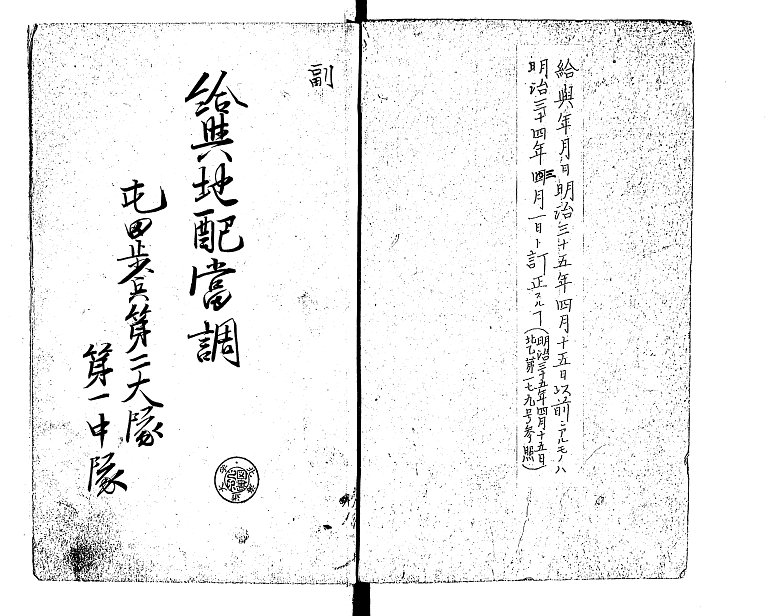 給與年月日明治三十五年四月十五日以前ニアルモノハ
明治三十四年三月一日ト訂正スルコト(明治三十五年四月十五日
北乙第一七九号参照)
副
給與地配當調
屯田歩兵第二大隊
第一中隊